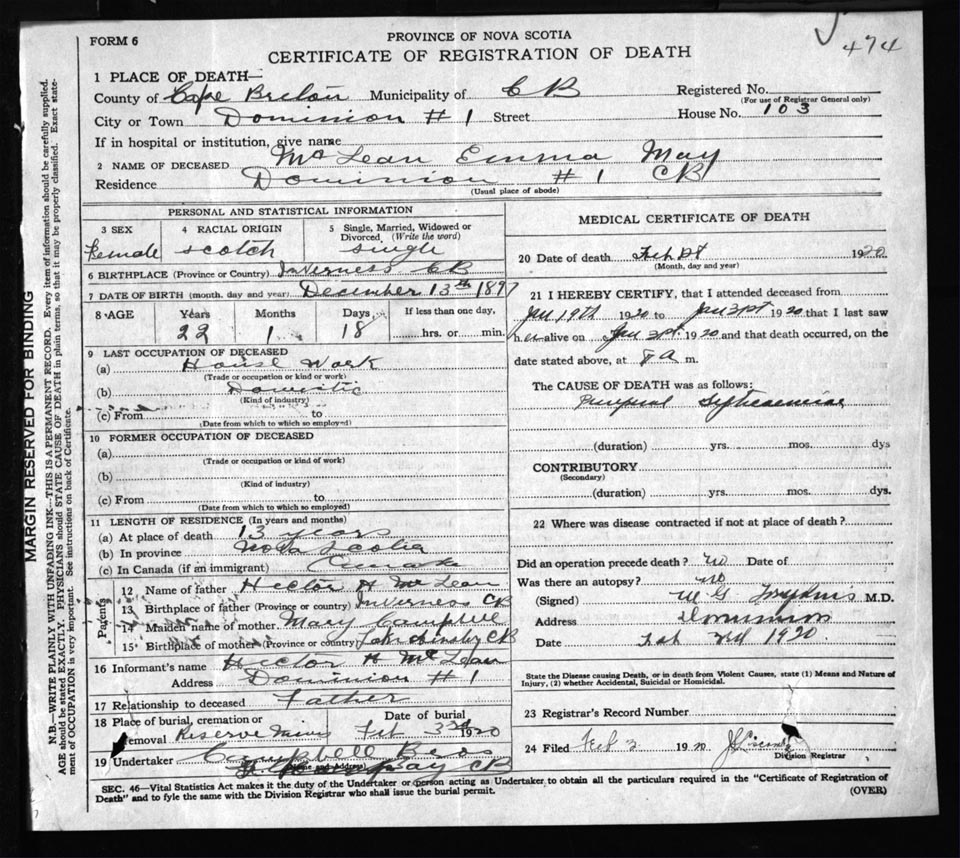 474
FORM 6
PROVINCE OF NOVA SCOTIA
CERTIFICATE OF REGISTRATION OF DEATH
1 PLACE OF DEATH—
County of Cape Breton Municipality of CB Registered No.
(For use of Registrar General only)
City or Town Dominion #1 Street House No. 103
If in hospital or institution, give name
2 NAME OF DECEASED McLean Emma May
Residence Dominion #1 CB
(Usual place of abode)
PERSONAL AND STATISTICAL INFORMATION
3 SEX 4 RACIAL ORIGIN 5 Single, Married, Widowed or Divorced. (Write the word)
Female Scotch Single
6 BIRTHPLACE (Province or Country) Inverness CB
7 DATE OF BIRTH (month, day and year) December 13th 1897
8 AGE Years Months Days If less than one day,
22 1 18 hrs. or min.
9 LAST OCCUPATION OF DECEASED
(a) House Work
(Trade or occupation or kind or work)
(b) Domistic
(Kind of industry)
(c) From to
(Date from which to which so employed)
10 FORMER OCCUPATION OF DECEASED
(a)
(Trade or occupation or kind of work)
(b)
(Kind of industry)
(c) From to
(Date from which to which so employed)
11 LENGTH OF RESIDENCE (In years and months)
(a) At place of death 13 years
(b) In province Nova Scotia
(c) In Canada (if an immigrant) Canada
Parents
12 Name of father Hector H McLean
13 Birthplace of father (Province or country) Inverness CB
14 Maiden name of mother Mary Campbell
15 Birthplace of mother (Province or country) CB
16 Informant's name Hector H McLean
Address Dominion #1
17 Relationship to deceased Father
18 Place of burial, cremation or removal Reserve Mines Date of burial Feb 3rd 1920
19 Undertaker Campbell Bros
CB
MEDICAL CERTIFICATE OF DEATH
20 Date of death Feb 1920
(Month, day and year)
21 I HEREBY CERTIFY, that I attended deceased from
Jan 19th 1920 to Jan 1920 that I last saw
her alive on Jan 1920 and that death occurred, on the
date stated above, at 8 a m.
The CAUSE OF DEATH was as follows:
Puerperal Septicaemia
(duration) yrs. mos. dys
CONTRIBUTORY
(Secondary)
(duration) yrs. mos. dys.
22 Where was disease contracted if not at place of death?
Did an operation precede death? no Date of
Was there an autopsy? no
(Signed) M.D.
Address Dominion
Date Feb 1920
State the Disease causing Death, or in death from Violent Causes, state (1) Means and Nature of
Injury, (2) whether Accidental, Suicidal or Homicidal.
23 Registrar's Record Number
24 Filed Feb 3 1920
Division Registrar
SEC. 46—Vital Statistics Act makes it the duty of the Undertaker or person acting as Undertaker to obtain all the particulars required in the "Certificate of Registration of
Death" and to fyle the same with the Division Registrar who shall issue the burial permit.
(OVER)
MARGIN RESERVED FOR BINDING
N.B.—WRITE PLAINLY WITH UNFADING INK—THIS IS A PERMANENT RECORD. Every item of information should be carefully supplied.
AGE should be stated EXACTLY. PHYSICIANS should STATE CAUSE OF DEATH in plain terms, so that it may be properly classified. Exact state-
ment of OCCUPATION is very important. See instructions on back of Certificate.